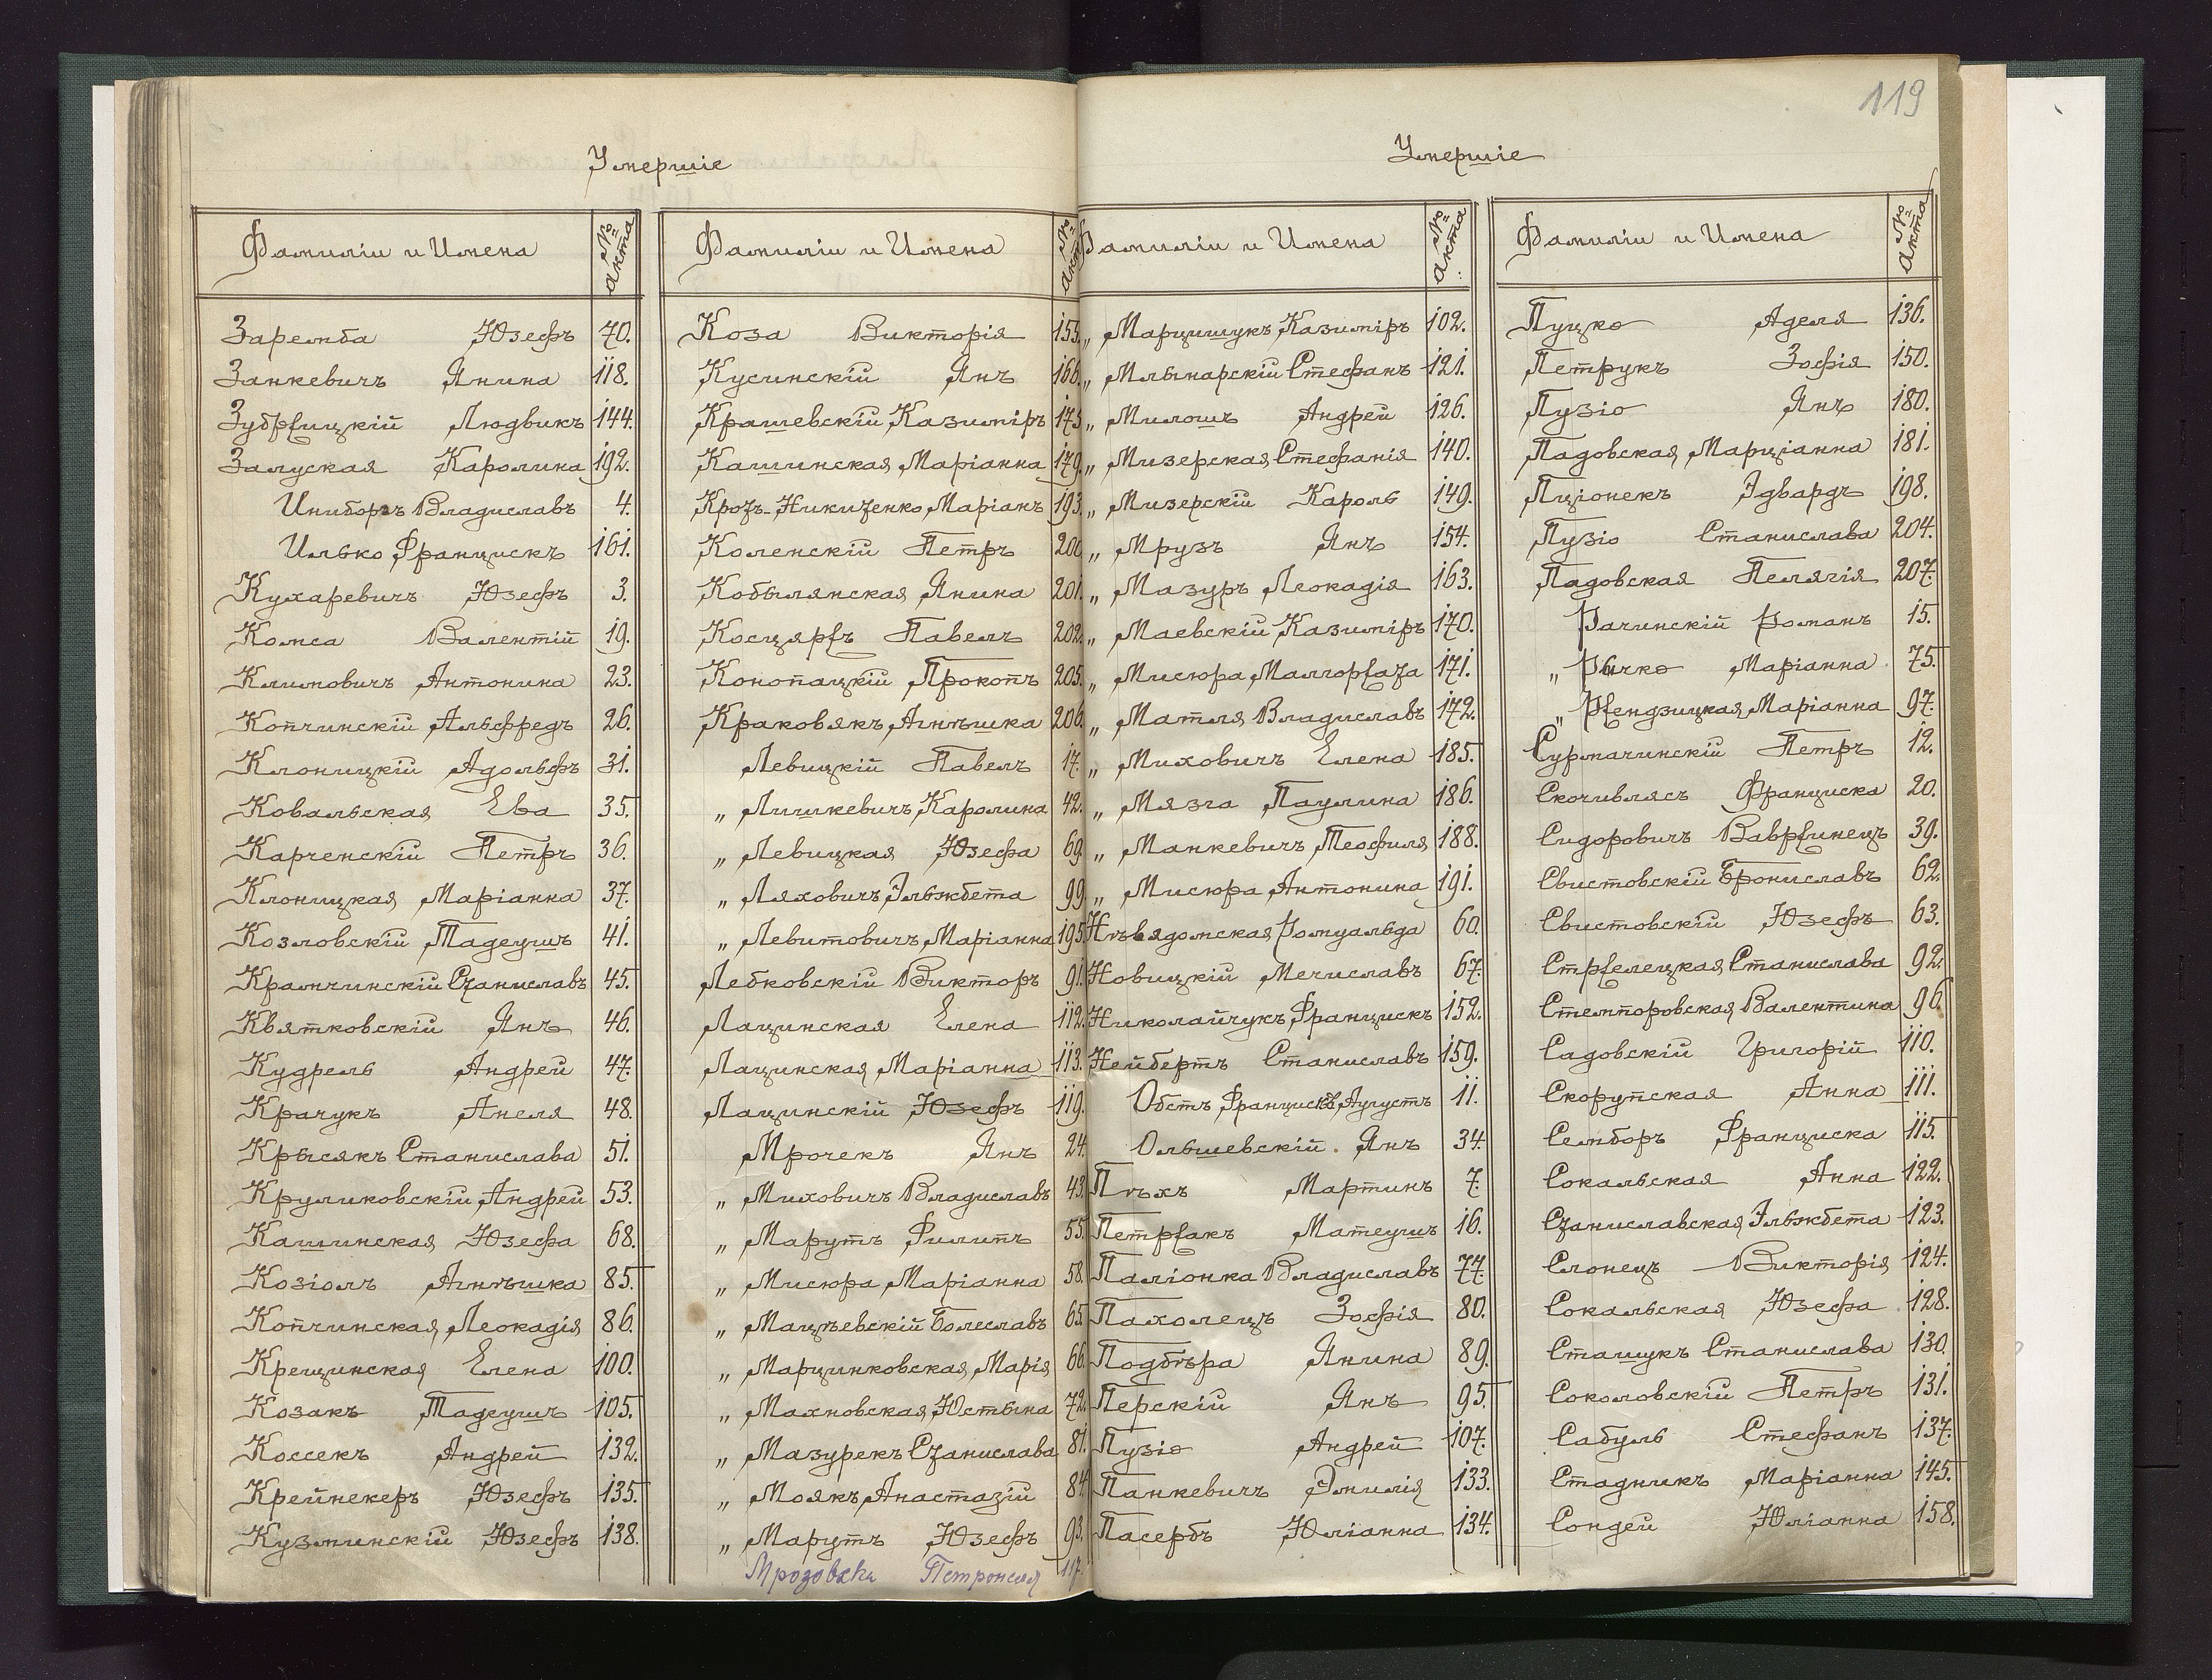 119
Умершіе
Фамиліи и Имена № акта
Заремба Юзефъ 70.
Занкевичъ Янина 118.
Зубрѕицкій Людвикъ 144.
Залуская Каролина 192.
Иниборъ Владиславъ 4.
Илько Францискъ 161.
Кухаревичъ Юзефъ 3.
Комса Валентій 19.
Климовичъ Антонина 23.
Копчинскій Альфредъ 26.
Клоницкій Адольфъ 31.
Ковальская Ева 35.
Карченскій Петръ 36.
Клоницкая Маріанна 37.
Козловскій Тадеушъ 41.
Крамчинскій Станиславъ 45.
Квятковскій Янъ 46.
Кудрель Андрей 47.
Крачукъ Анеля 48.
Крысякъ Станислава 51.
Круликовскій Андрей 53.
Кашинская Юзефа 68.
Козіолъ Агнѣшка 85.
Копчинская Леокадія 86.
Крещинская Елена 100.
Козакъ Тадеушъ 105.
Коссекъ Андрей 132.
Крейнекеръ Юзефъ 135.
Кузминскій Юзефъ 138.
Фамиліи и Имена № акта
Коза Викторія 155.
Кусинскій Янъ 166.
Крашевскій Казиміръ 175.
Кашинская Маріанна 179.
Крозъ-Никизенко Маріанъ 193.
Коленскій Петръ 200.
Кобылянская Янина 201.
Косцярѕъ Павелъ 202.
Конопацкій Прокопъ 205.
Краковякъ Агнѣшка 206.
Левицкій Павелъ 17.
„ Лишкевичъ Каролина 42.
„ Левицкая Юзефа 69.
„ Ляховичъ Эльжбета 99.
„ Левитовичъ Маріанна 195.
Лебковскій Викторъ 91.
Лацинская Елена 112.
Лацинская Маріанна 113.
Лацинскій Юзефъ 119.
Мрочекъ Янъ 24.
„ Миховичъ Владиславъ 43.
„ Марутъ Филипъ 55.
„ Мисюра Маріанна 58.
„ Мацѣевскій Болеславъ 65.
„ Марцинковская Марія 66.
„ Махновская Юстына 72.
„ Мазурекъ Станислава 81.
„ Моякъ Анастазій 84.
„ Марутъ Юзефъ 93.
Мрозовска Петронеля 117.
Умершіе
Фамиліи и Имена № акта
„ Марцишукъ Казиміръ 102.
„ Млынарскій Стефанъ 121.
„ Милошъ Андрей 126.
„ Мизерская Стефанія 140.
„ Мизерскій Кароль 149.
„ Мрузъ Янъ 154.
„ Мазуръ Леокадія 163.
„ Маевскій Казиміръ 170.
„ Мисюра Малгорѕаза 171.
„ Матля Владиславъ 172.
„ Миховичъ Елена 185.
„ Мязга Паулина 186.
„ Манкевичъ Теофиля 188.
„ Мисюра Антонина 191.
Нѣвядомская Ромуальда 60.
Новицкій Мечиславъ 67.
Николайчукъ Францискъ 152.
Нейбертъ Станиславъ 159.
Обстъ Францискъ Августъ 11.
Ольшевскій Янъ 34.
Пѣхъ Мартинъ 7.
Петрѕакъ Матеушъ 16.
Паліонка Владиславъ 77.
Пахолецъ Зофія 80.
Подбѣра Янина 89.
Перскій Янъ 95.
Пузіо Андрей 107.
Панкевичъ Эмилія 133.
Пасербъ Юліанна 134.
Фамиліи и Имена № акта
Пуцко Аделя 136.
Петрукъ Зофія 150.
Пузіо Янъ 180.
Падовская Марціанна 181.
Пціонекъ Эдвардъ 198.
Пузіо Станислава 204.
Падовская Пелягія 207.
Рачинскій Романъ 15.
„ Рычко Маріанна 75.
„ Рѕендзицкая Маріанна 97.
Сурмачинскій Петръ 12.
Скочиглясъ Франциска 20.
Сидоровичъ Ваврѕинецъ 39.
Свистовскій Брониславъ 62.
Свистовскій Юзефъ 63.
Стрѕелецкая Станислава 92.
Стемпоровская Валентина 96.
Садовскій Григорій 110.
Скорупская Анна 111.
Семборъ Франциска 115.
Сокальская Анна 122.
Станиславская Эльжбета 123.
Слонецъ Викторія 124.
Сокальская Юзефа 128.
Сташукъ Станислава 130.
Соколовскій Петръ 131.
Сабуль Стефанъ 137.
Стадникъ Маріанна 145.
Сондей Юліанна 158.